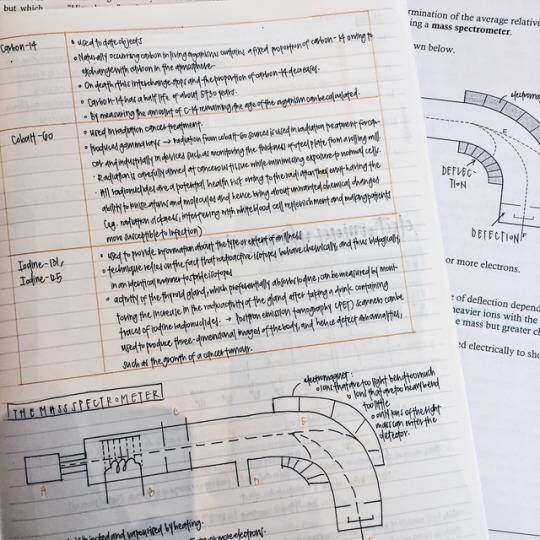 but which
Carbon-14
• used to date objects
• Naturally occurring carbon in living organisms contains a fixed proportion of carbon-14 owing to
exchange with carbon in the atmosphere.
• On death, this interchange stops and the proportion of carbon-14 decreases.
• Carbon-14 has a half life of about 5730 years.
• By measuring the amount of C-14 remaining, the age of the organism can be calculated.
Cobalt-60
• used in radiation cancer treatment.
• Produces gamma rays → radiation from cobalt-60 sources is used in radiation treatment for can-
cer and industrially in devices such as monitoring the thickness of steel plate from a rolling mill.
• Radiation is carefully aimed at cancerous tissue while minimising exposure to normal cells.
• All radionuclides are a potential health risk owing to the radiation they emit having the
ability to ionise atoms and molecules and hence bring about unwanted chemical changes
(e.g. radiation sickness, interfering with white blood cell replenishment and making patients
more susceptible to infection)
Iodine-131,
Iodine-125
• used to provide information about the type or extent of an illness
• technique relies on the fact that radioactive isotopes behave chemically, and thus biologically,
in an identical manner to stable isotopes
• activity of the thyroid gland, which preferentially absorbs iodine, can be measured by moni-
toring the increase in the radioactivity of the gland after taking a drink containing
traces of iodine radionuclides. → Positron emission tomography (PET) scanners can be
used to produce three-dimensional images of the body, and hence detect abnormalities,
such as the growth of a cancer tumour.
THE MASS SPECTROMETER
electromagnet:
• ions that are too light bend too much
• ions that are too heavy bend
too little
• only ions of the right
mass can enter the
detector.
A
B
C
D
E
F
is injected and vapourised by heating.
or more electrons.
rmination of the average relative
ing a mass spectrometer.
wn below.
electromag
E
DEFLEC-
TION
DETECTION
F
or more electrons.
e of deflection depend
heavier ions with the
e mass but greater ch
ed electrically to sho